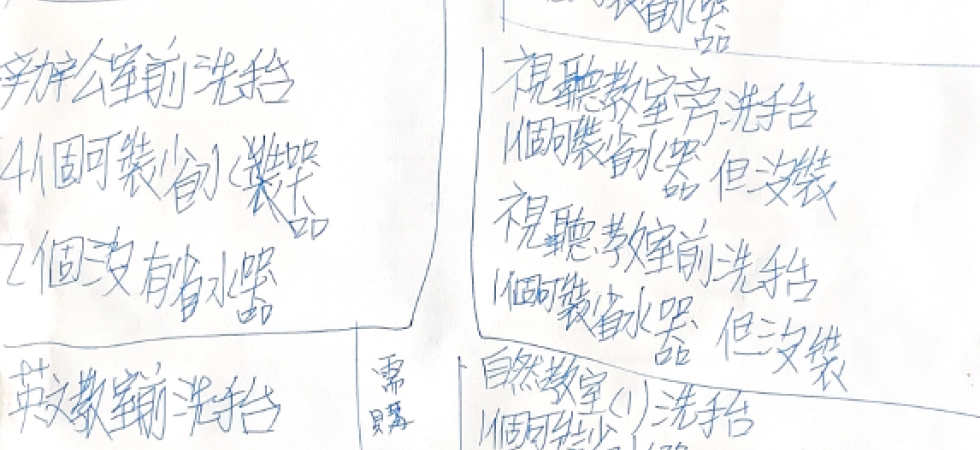 辦公室前洗手台
4個可裝省水裝器
2個沒有省水器
英文教室前洗手台
需購
裝省水器
視聽教室旁洗手台
1個可裝省水器 但沒裝
視聽教室前洗手台
1個可裝省水器 但沒裝
自然教室(1)洗手台
1個可裝省